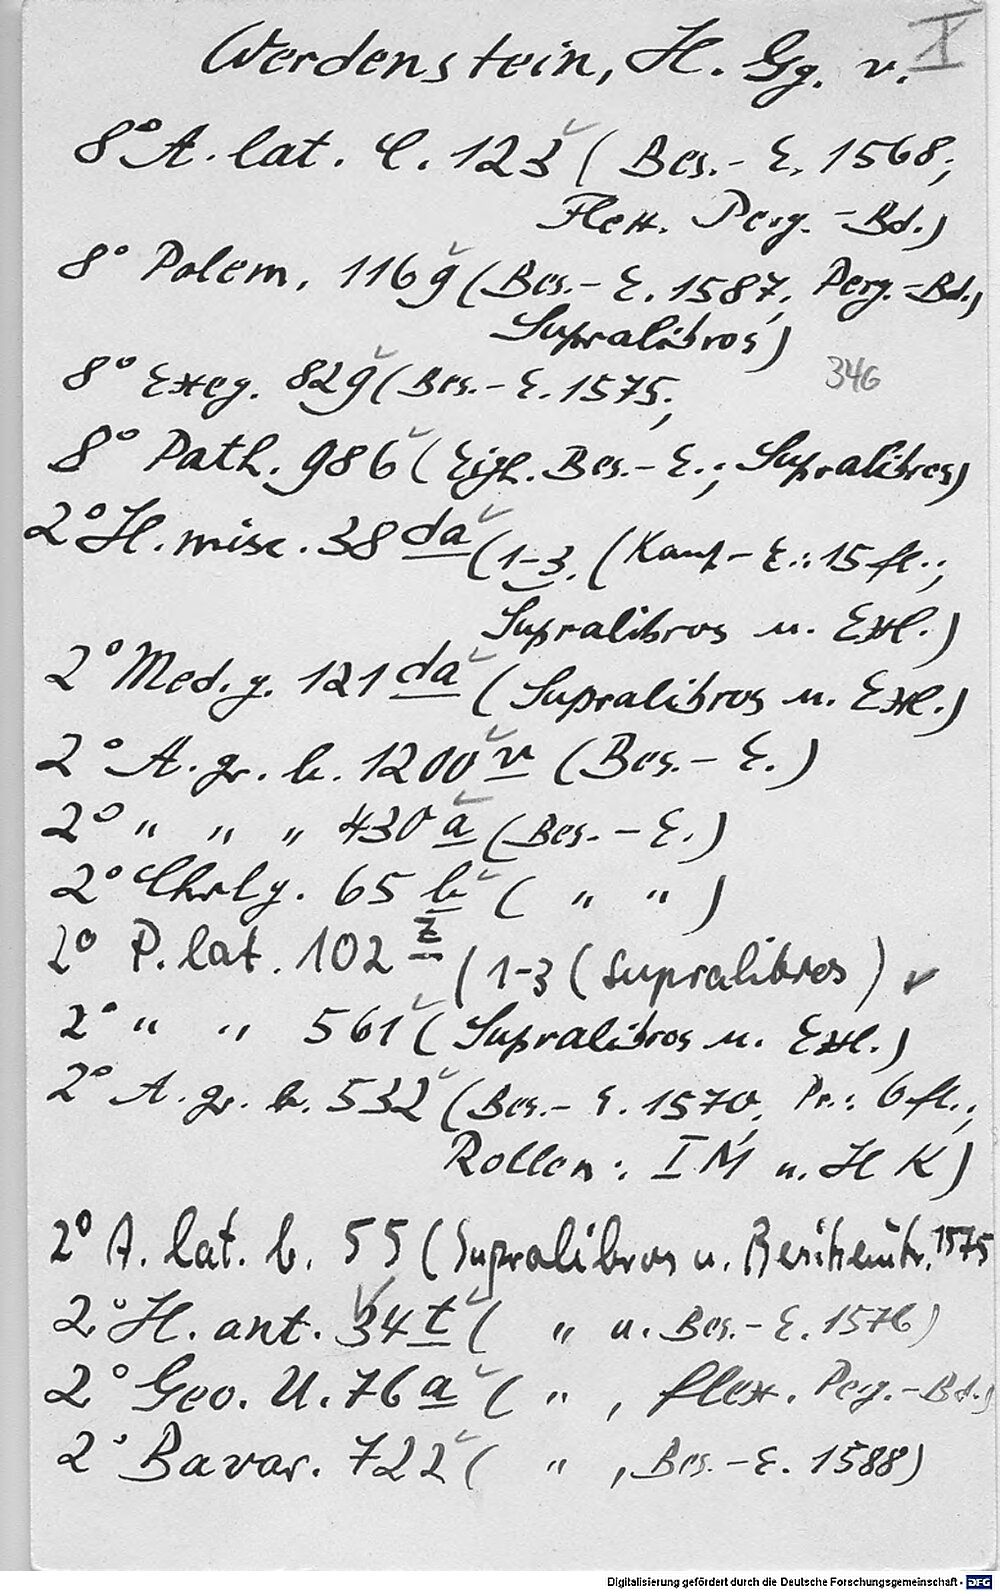 Werdenstein, H. Gg. v. X
8° A. lat. c. 123 (Bes.-E. 1568;
Flex. Perg.-Bd.)
8° Polem. 1169 (Bes.-E. 1587, Perg.-Bd.,
Supralibros)
8° Exeg. 829 (Bes.-E. 1575;
346
8° Path. 986 (Eigh. Bes.-E.; Supralibros)
2° H. misc. 38 da (1-3. (Kauf-E.: 15 fl.;
Supralibros u. Exl.)
2° Med. g. 121 da (Supralibros u. Exl.)
2° A. gr. b. 1200 v (Bes.-E.)
2° " " " 430 a (Bes.-E.)
2° Chrlg. 65 b ( " " )
2° P. lat. 102 z (1-3 (Supralibros)
2° " " 561 (Supralibros u. Exl.)
2° A. gr. b. 532 (Bes.-E. 1570; Pr.: 6 fl.;
Rollen: I M u. H K)
2° A. lat. b. 55 (Supralibros u. 1575
2° H. ant. 34 t ( " u. Bes.-E. 1576)
2° Geo. U. 76 a ( " , flex. Perg.-Bd.)
2° Bavar. 722 ( " , Bes.-E. 1588)
Digitalisierung gefördert durch die Deutsche Forschungsgemeinschaft - DFG